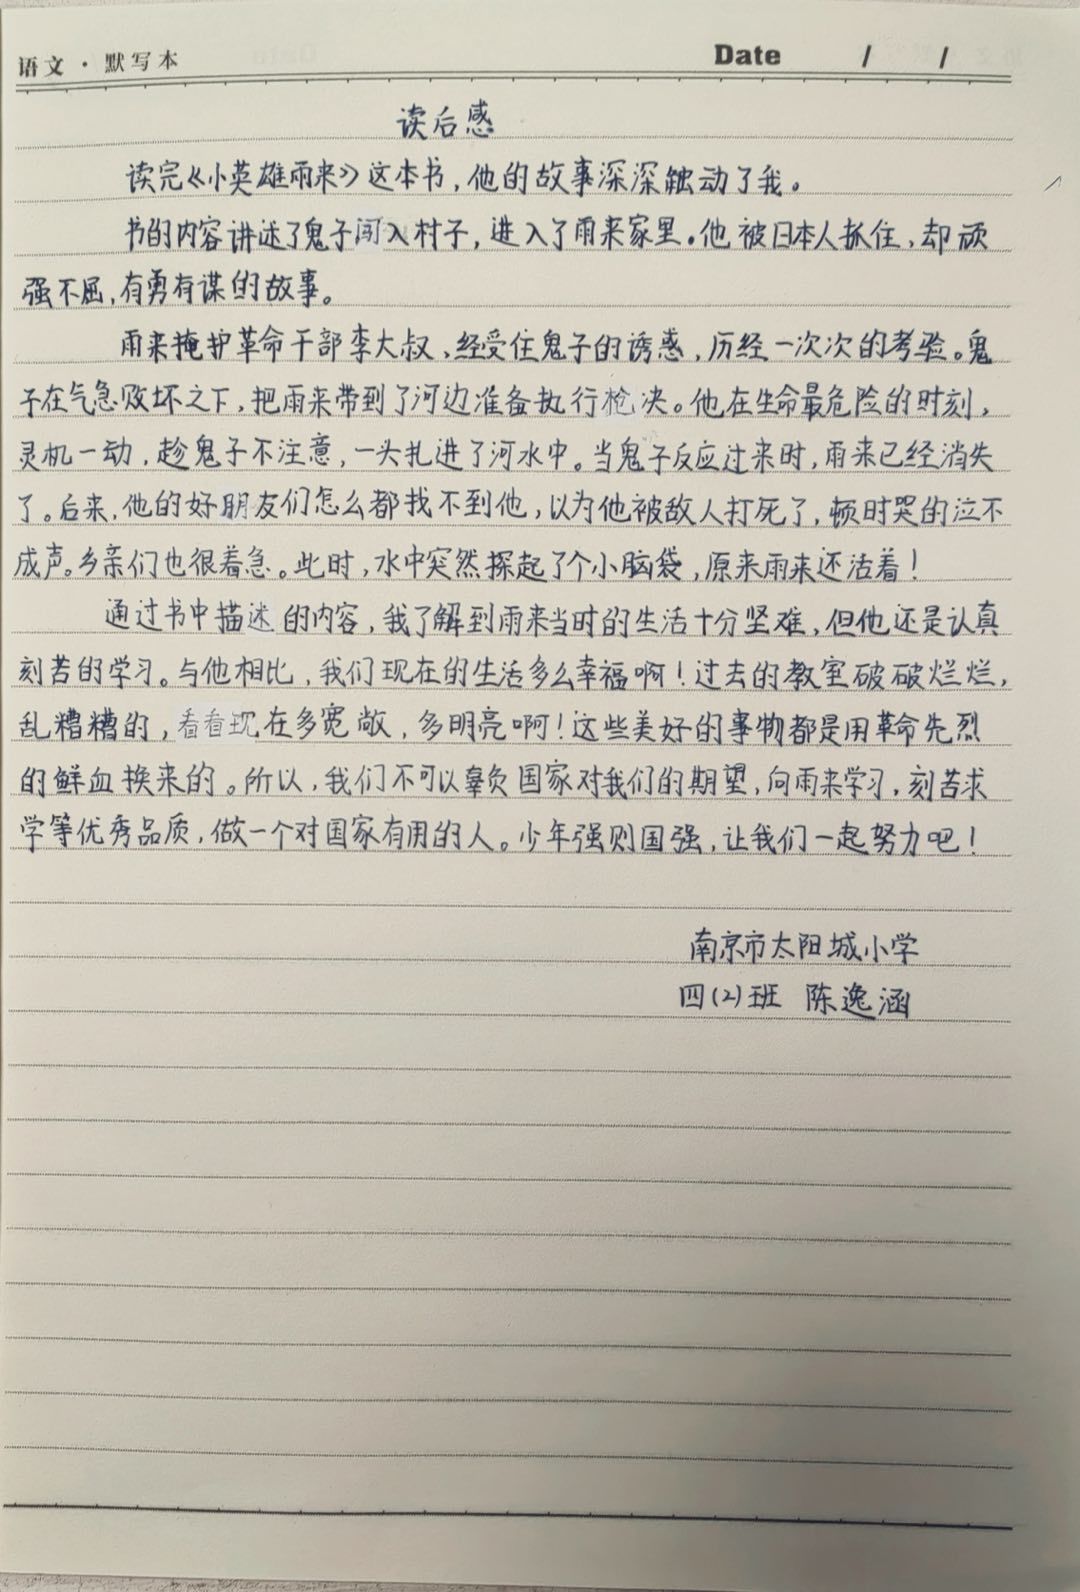 语文·默写本 Date / /
读后感
读完《小英雄雨来》这本书,他的故事深深触动了我。
书的内容讲述了鬼子闯入村子,进入了雨来家里。他被日本人抓住,却顽
强不屈,有勇有谋的故事。
雨来掩护革命干部李大叔、经受住鬼子的诱惑,历经一次次的考验。鬼
子在气急败坏之下,把雨来带到了河边准备执行枪决。他在生命最危险的时刻,
灵机一动,趁鬼子不注意,一头扎进了河水中。当鬼子反应过来时,雨来已经消失
了。后来,他的好朋友们怎么都找不到他,以为他被敌人打死了,顿时哭的泣不
成声。乡亲们也很着急。此时,水中突然探起了个小脑袋,原来雨来还活着!
通过书中描述的内容,我了解到雨来当时的生活十分坚难,但他还是认真
刻苦的学习。与他相比,我们现在的生活多么幸福啊!过去的教室破破烂烂,
乱糟糟的,看看现在多宽敞,多明亮啊!这些美好的事物都是用革命先烈
的鲜血换来的。所以,我们不可以辜负国家对我们的期望,向雨来学习,刻苦求
学等优秀品质,做一个对国家有用的人。少年强则国强,让我们一起努力吧!
南京市太阳城小学
四(2)班 陈逸涵